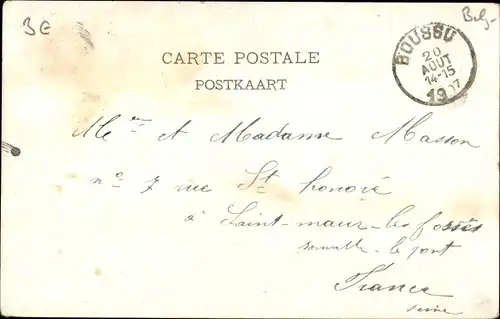 BE
Belg.
BOUSSU
20
AOUT
14-15
1907
CARTE POSTALE
POSTKAART
et Madame Masson
n° 7 rue St honoré
à Saint-maur-les fossés
le pont
France
Seine